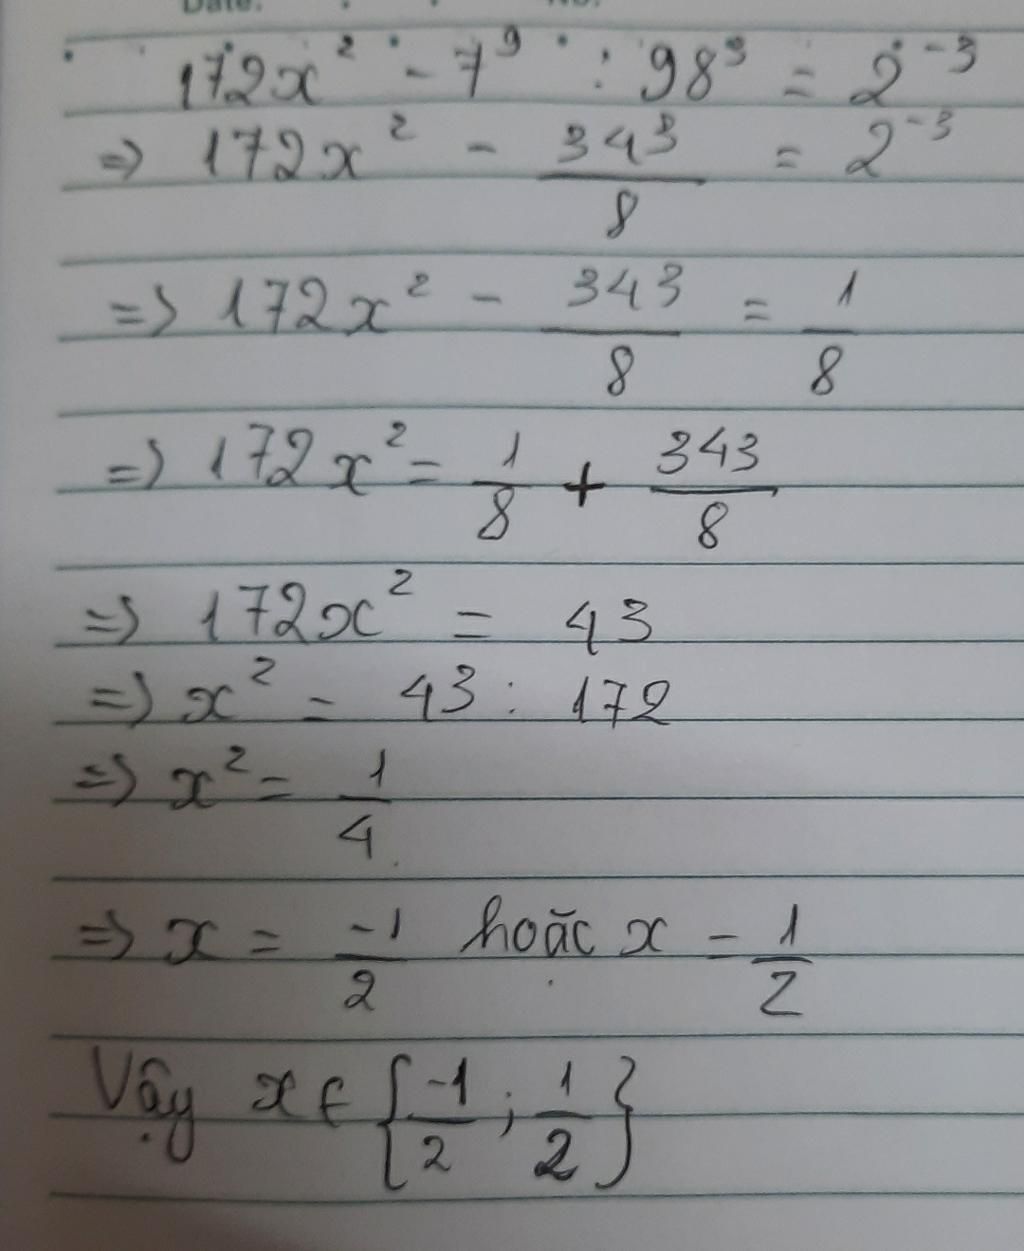 Date: No.
172x² - 7⁹ : 98³ = 2⁻³
=> 172x² - 343/8 = 2⁻³
=> 172x² - 343/8 = 1/8
=> 172x² = 1/8 + 343/8
=> 172x² = 43
=> x² = 43 : 172
=> x² = 1/4
=> x = -1/2 hoặc x = 1/2
Vậy x ∈ {-1/2 ; 1/2}